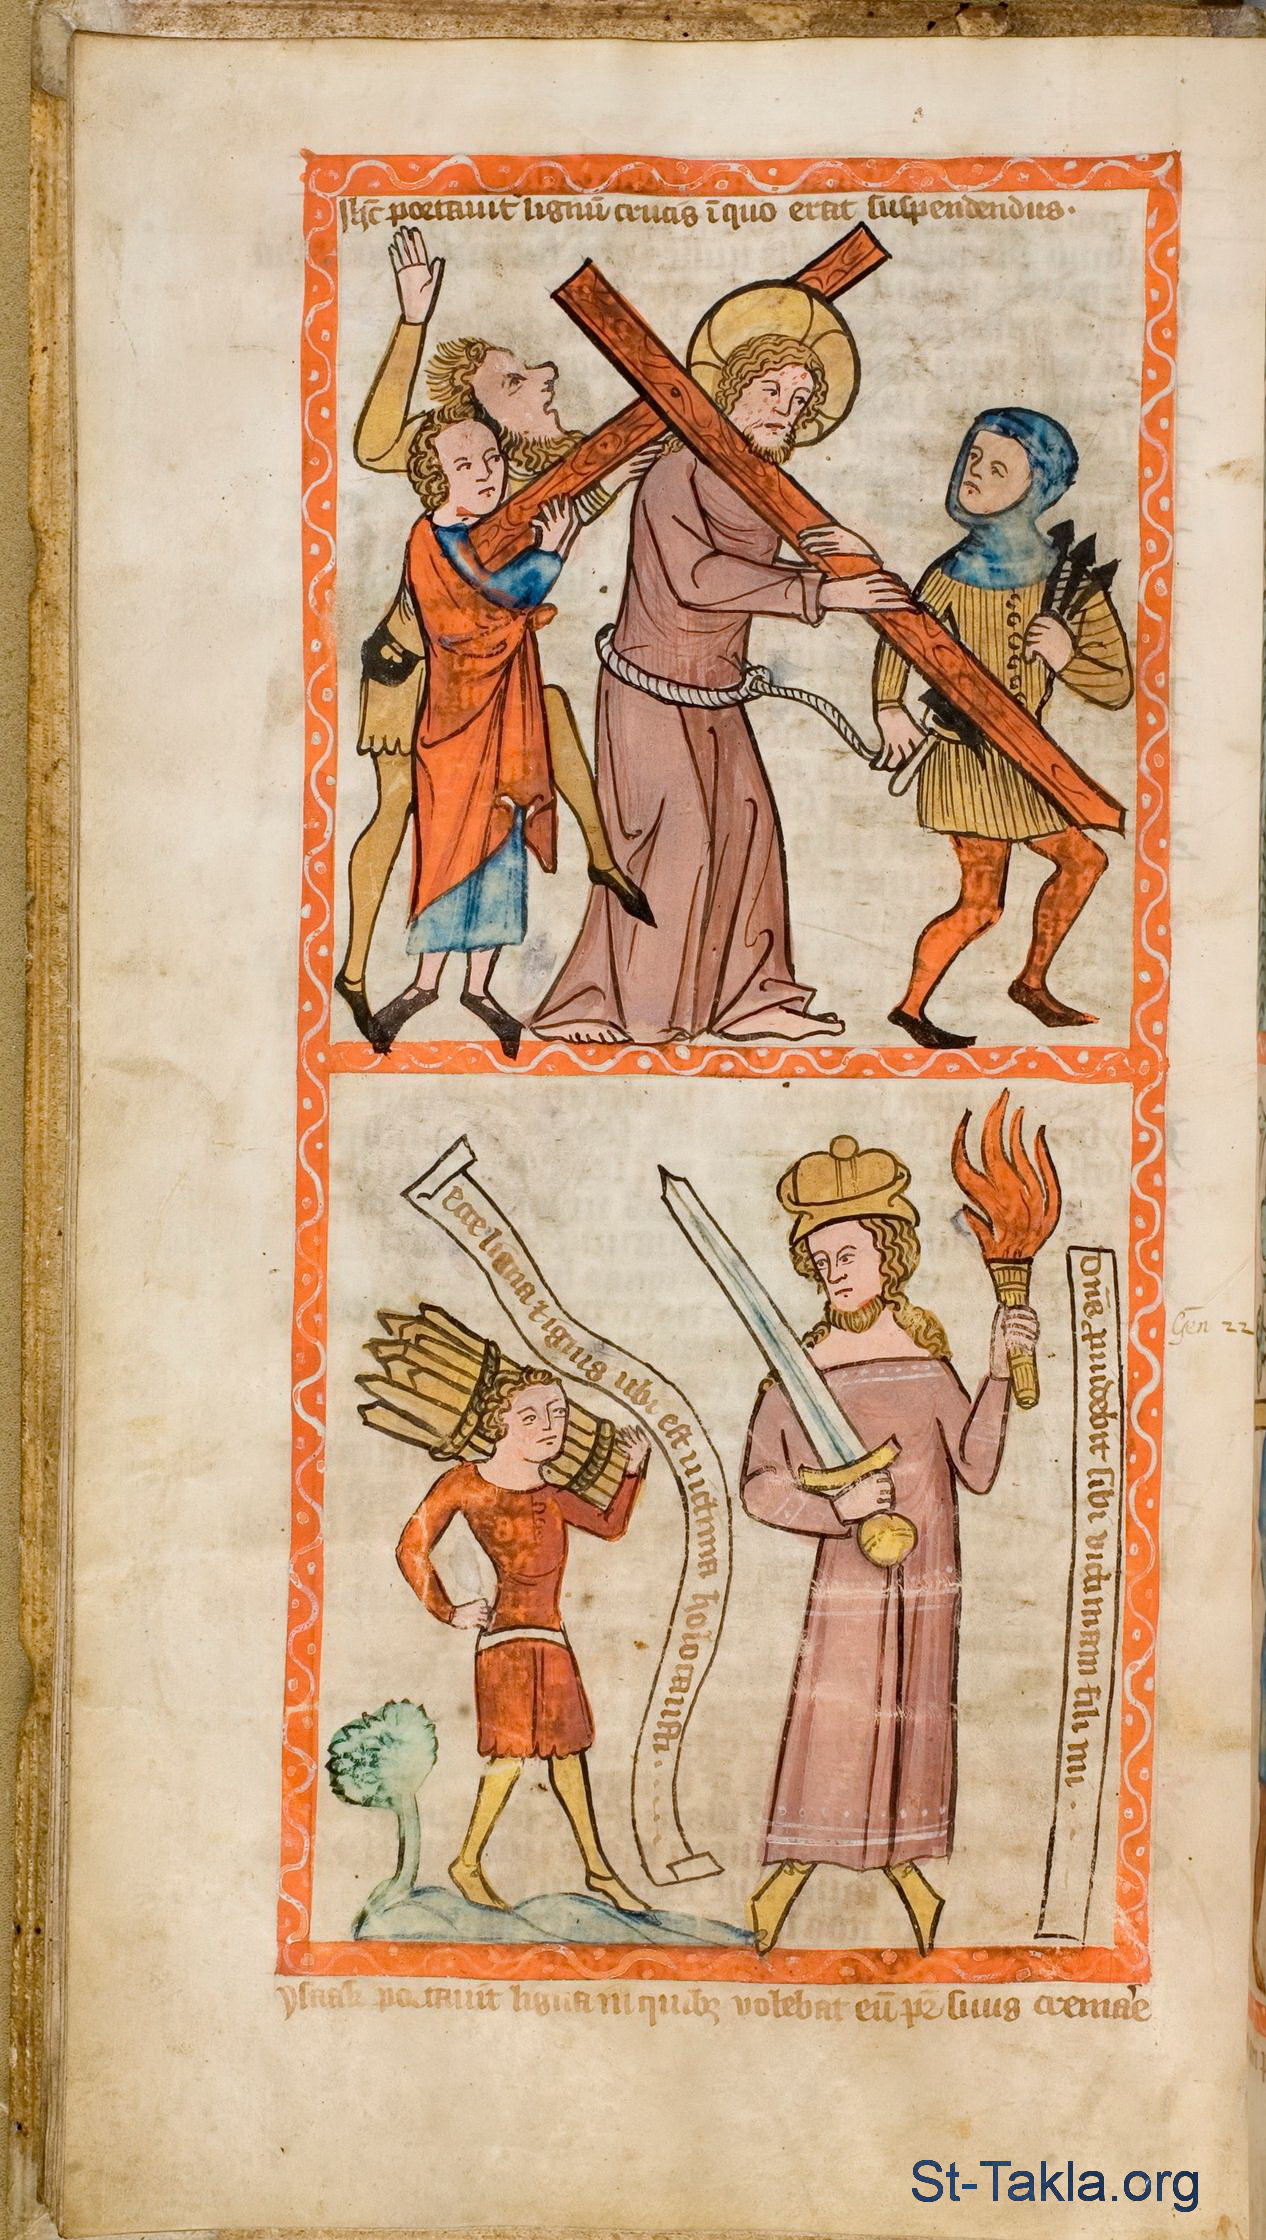 Ihc̄ portauit lignū crucis ī quo erat suspendendus.
ecce ligna et ignis ubi est uictima holocausti
Dn̄s prouidebit sibi victimam fili mi
Gen 22
ysaak portauit ligna in quibꝫ volebat eū pr̄ suus cremare
St-Takla.org